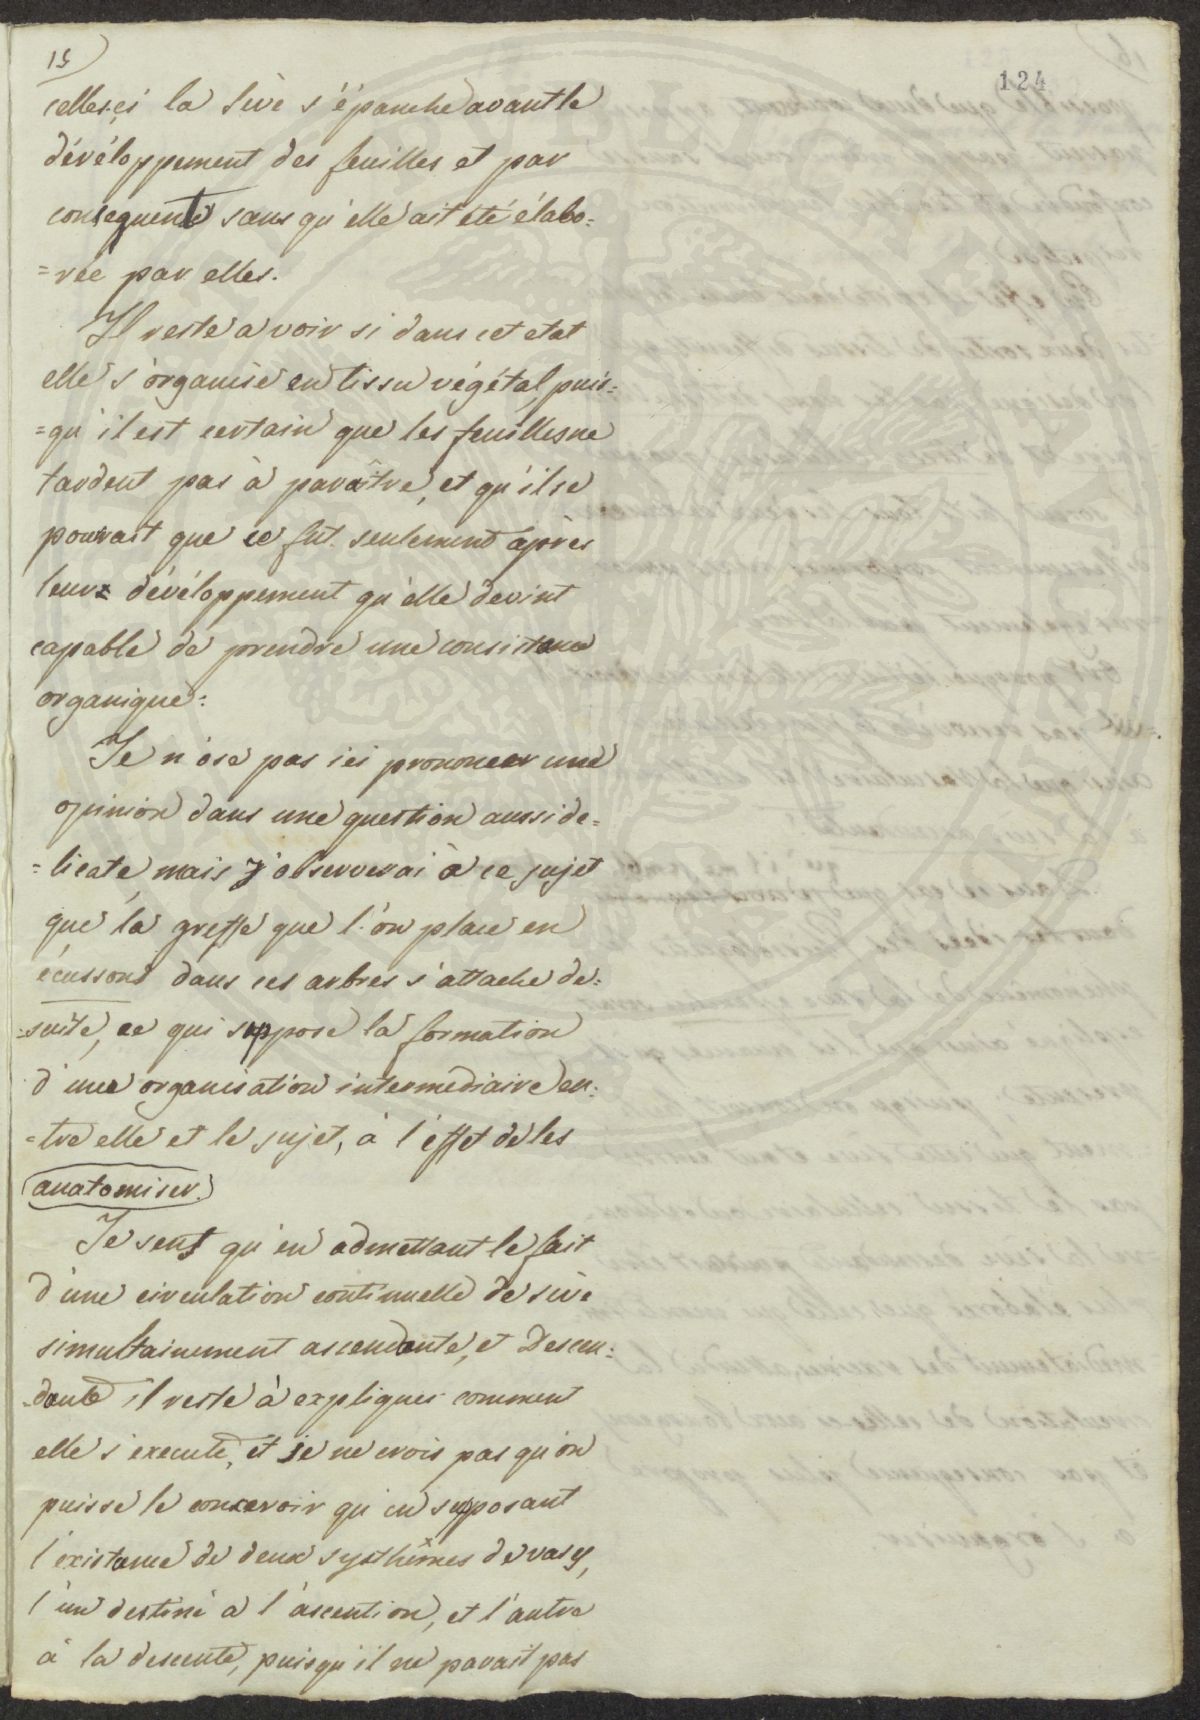 15
124
celles.ci la Sève s'épanche avant le
dévéloppement des feuilles et par
consequent sans qu'elle ait été élabo=
=rée par elles.
Il reste a voir si dans cet etat
elle s'organise en tissu végétal puis=
=qu'il est certain que les feuilles ne
tardent pas à paraître, et qu'il se
pourait que ce fut seulement après
leur dévéloppement qu'elle devint
capable de prendre une consistance
organique:
Je n'ose pas ici prononcer une
opinion dans une question aussi de=
=licate, mais j'observerai à ce sujet
que la greffe que l'on place en
écussons dans ces arbres s'attache de=
=suite, ce qui suppose la formation
d'une organisation intermediaire en=
=tre elle et le sujet, à l'effet de les
anatomiser.
Je sens qu'en admettant le fait
d'une circulation continuelle de sève
simultainement ascendante, et Descen=
=dante il reste à expliquer comment
elle s'execute, et je ne crois pas qu'on
puisse le concevoir qu'en supposant
l'existance de deux systhêmes de vas,
l'un destiné a l'ascention, et l'autre
à la descente, puisqu'il ne parait pas